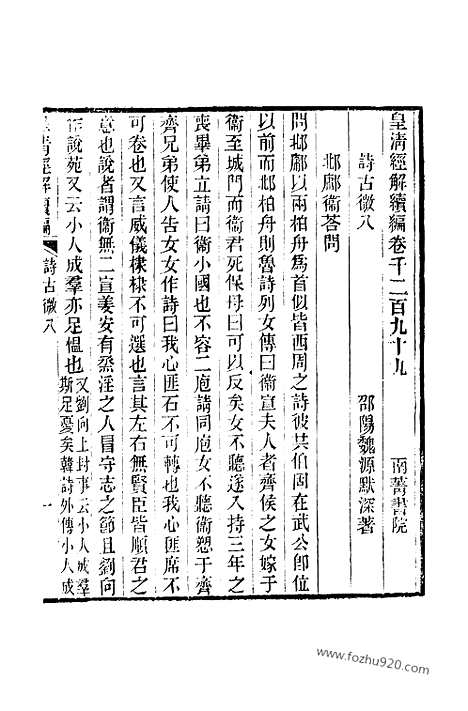 皇清經解續編卷千二百九十九　南菁書院
詩古微八　邵陽魏源默深著
邶鄘衞荅問
問邶鄘以兩柏舟爲首似皆西周之詩彼共伯固在武公卽位
以前而邶柏舟則魯詩列女傳曰衞宣夫人者齊侯之女嫁于
衞至城門而衞君死保母曰可以反矣女不聽遂入持三年之
喪畢弟立請曰衞小國也不容二庖請同庖女不聽衞愬于齊
齊兄弟使人告女女作詩曰我心匪石不可轉也我心匪席不
可卷也又言威儀棣棣不可選也言其左右無賢臣皆順君之
意也說者謂衞無二宣姜安有烝淫之人冒守志之節且劉向
作說苑又云小人成羣亦足慍也又劉向上封事云小人成羣
斯足憂矣韓詩外傳小人成
皇清經解續編　詩古微八　一
www.fozhu920.com